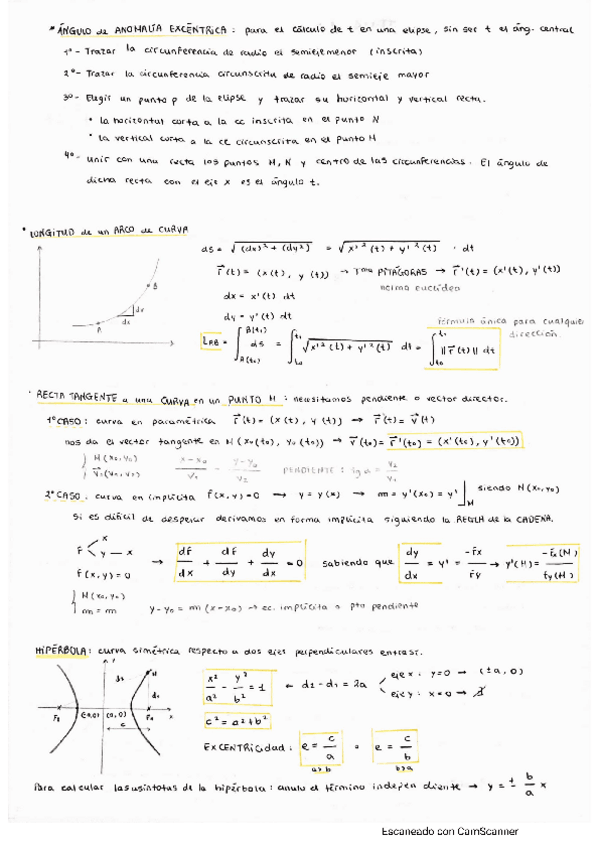 * ÁNGULO de ANOMALÍA EXCÉNTRICA: para el cálculo de t en una elipse, sin ser t el áng. central
1º- Trazar la circunferencia de radio el semieje menor (inscrita)
2º- Trazar la circunferencia circunscrita de radio el semieje mayor
3º- Elegir un punto p de la elipse y trazar su horizontal y vertical recta.
• la horizontal corta a la cc inscrita en el punto N
• la vertical corta a la cc circunscrita en el punto M
4º- Unir con una recta los puntos M, N y centro de las circunferencias. El ángulo de
dicha recta con el eje x es el ángulo t.
* LONGITUD de un ARCO de CURVA
ds = √(dx)² + (dy²) = √x'²(t) + y'²(t) · dt
r⃗(t) = (x(t), y(t)) → Tma PITÁGORAS → r⃗'(t) = (x'(t), y'(t))
norma euclídea
dx = x'(t) dt
dy = y'(t) dt
fórmula única para cualquier
dirección.
LAB = ∫ B(t1) A(t0) ds = ∫ t1 t0 √x'²(t) + y'²(t) dt = ∫ t1 t0 ||r⃗'(t)|| dt
A
B
dx
* RECTA TANGENTE a una CURVA en un PUNTO M: necesitamos pendiente o vector director.
1º CASO: curva en paramétrica r⃗(t) = (x(t), y(t)) → r⃗'(t) = v⃗(t)
nos da el vector tangente en M(x0(t0), y0(t0)) → v⃗(t0) = r⃗'(t0) = (x'(t0), y'(t0))
M(x0, y0) x-x0 / v1 = y-y0 / v2 PENDIENTE: tg a = v2 / v1
2º CASO. curva en implícita F(x,y)=0 → y = y(x) → m = y'(x0) = y']M siendo M(x0,y0)
Si es difícil de despejar derivamos en forma implícita siguiendo la REGLA de la CADENA.
F x y — x → dF/dx + dF/dy + dy/dx = 0 sabiendo que dy/dx = y' = -Fx/Fy → y'(M) = -Fx(M)/Fy(M)
F(x,y) = 0
M(x0, y0)
m = m y-y0 = m(x-x0) → ec. implícita o pto pendiente
HIPÉRBOLA: curva simétrica respecto a dos ejes perpendiculares entre sí.
x²/a² - y²/b² = 1 ← d2 - d1 = 2a eje x: y=0 → (±a, 0)
eje y: x=0 → ∄
c² = a² + b²
EXCENTRICIDAD: e = c/a o e = c/b
a>b b>a
y M d2 d1 F2 (-a,0) (a,0) F1 x c
Para calcular las asíntotas de la hipérbola: anulo el término independiente → y = ± b/a x
Escaneado con CamScanner